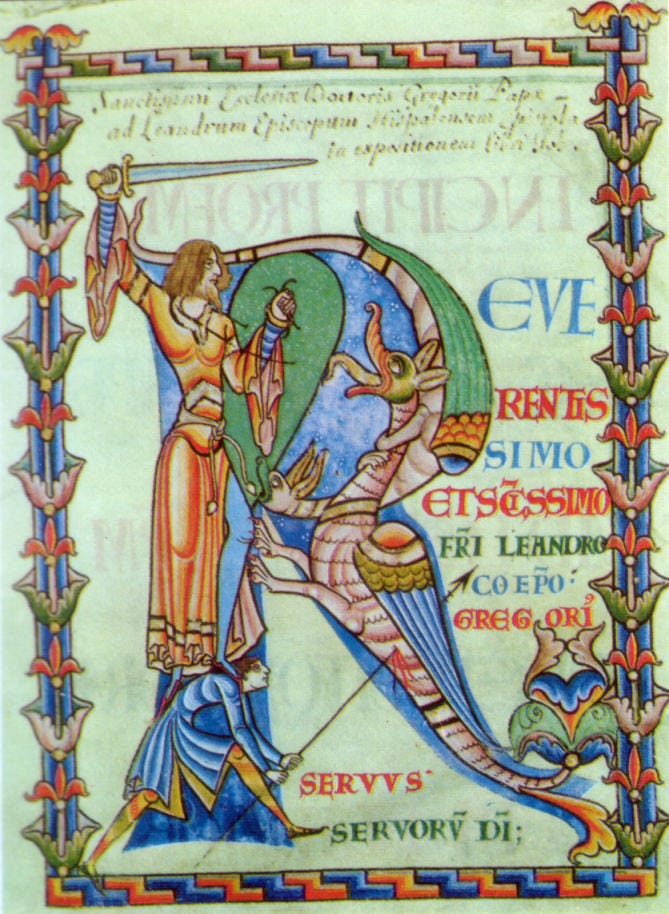 Sanctissimi Ecclesiæ Doctoris Gregorii Papæ
ad Leandrum Episcopum Hispalensem Epistola
in expositionem libri Iob.
INCIPIT PROEM
R
EVE
RENTIS
SIMO
ETSC̄ISSIMO
FR̄I LEANDRO
COEP̄O
GREGORI᾽
SERVVS
SERVORV̄ DI̅;